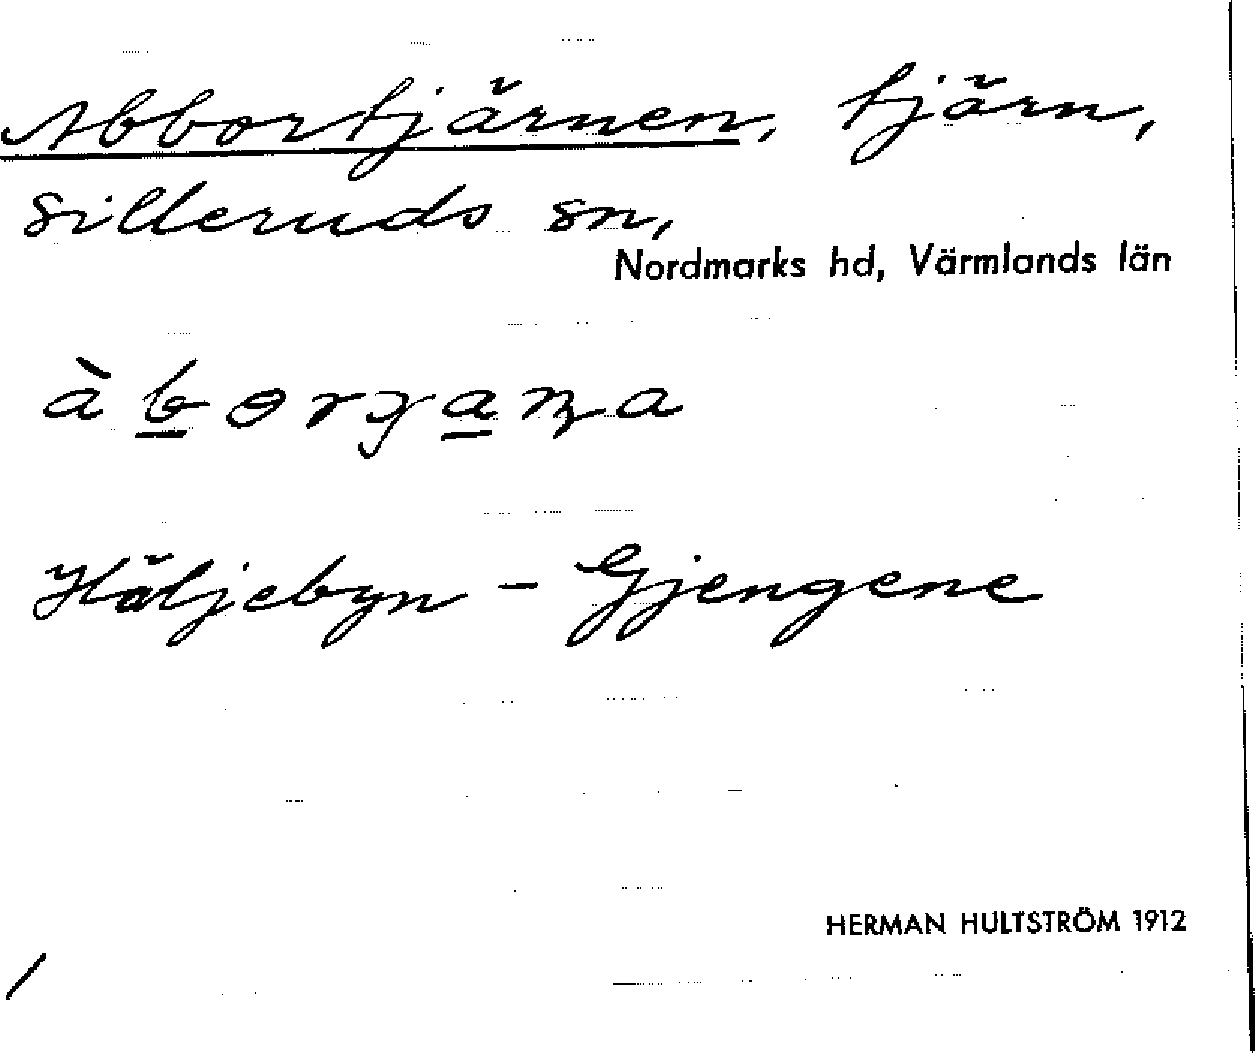 Abbortjärnen, tjärn,
Silleruds sn,
Nordmarks hd, Värmlands län
Häljebyn - Gjengene
HERMAN HULTSTRÖM 1912
/